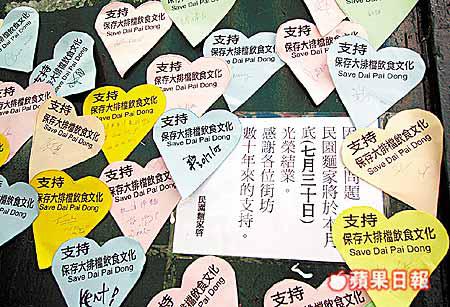 支持
保存大排檔飲食文化
Save Dai Pai Dong
支持
保存大排檔飲食文化
Save Dai Pai Dong
支持
保存大排檔飲食文化
Save Dai Pai Dong
支持
保存大排檔飲食文化
Save Dai Pai Dong
支持
保存大排檔飲食文化
Save Dai Pai Dong
支持
保存大排檔飲食文化
Save Dai Pai Dong
支持
保存大排檔飲食文化
Save Dai Pai Dong
支持
保存大排檔飲食文化
Save Dai Pai Dong
支持
保存大排檔飲食文化
Save Dai Pai Dong
支持
保存大排檔飲食文化
Save Dai Pai Dong
因
問題
民園麵家將於本月
底(七月三十日)
光榮結業。
感謝各位街坊
數十年來的支持。
民園麵家啓
支持
保存大排檔飲食文化
Save Dai Pai Dong
支持
保存大排檔飲食文化
Save Dai Pai Dong
支持
保存大排檔飲食文化
Save Dai Pai Dong
支持
保存大排檔飲食文化
Save Dai Pai Dong
支持
保存大排檔飲食文化
Save Dai Pai Dong
Kent!
蘋果日報